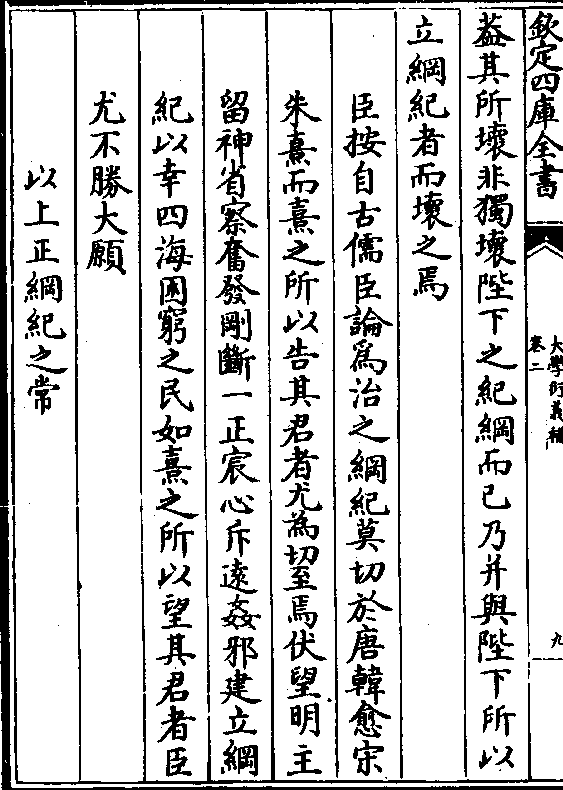 欽定四庫全書
大學衍義補
卷二
九
蓋其所壞非獨壞陛下之紀綱而已乃并與陛下所以
立綱紀者而壞之焉
臣按自古儒臣論為治之綱紀莫切於唐韓愈宋
朱熹而熹之所以告其君者尤為切至焉伏望明主
留神省察奮發剛斷一正宸心斥遠姦邪建立綱
紀以幸四海困窮之民如熹之所以望其君者臣
尤不勝大願
以上正綱紀之常